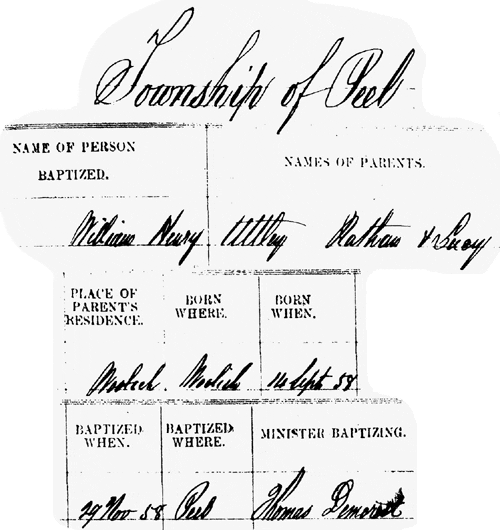 Township of Peel
NAME OF PERSON
BAPTIZED.
NAMES OF PARENTS.
William Henry Uttley Nathan & Lucy
PLACE OF
PARENT'S
RESIDENCE.
BORN
WHERE.
BORN
WHEN.
Woolich. Woolich 14 Sept 58
BAPTIZED
WHEN.
BAPTIZED
WHERE.
MINISTER BAPTIZING.
29 Nov 58 Peel Thomas Demorest